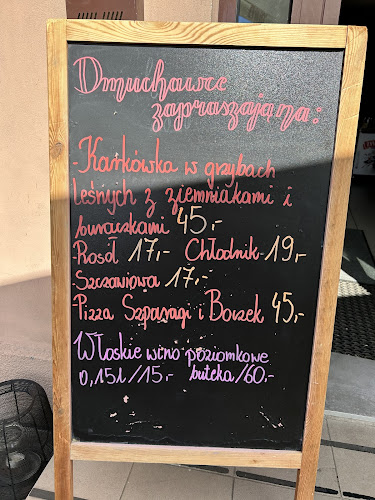 Dmuchawce
zapraszają na:
-Karkówka w grzybach
leśnych z ziemniakami i
buraczkami 45,-
-Rosół 17,- Chłodnik 19,-
-Szczawiowa 17,-
-Pizza Szparagi i Boczek 45,-
Włoskie wino poziomkowe
0,15l/15.- butelka/60.-